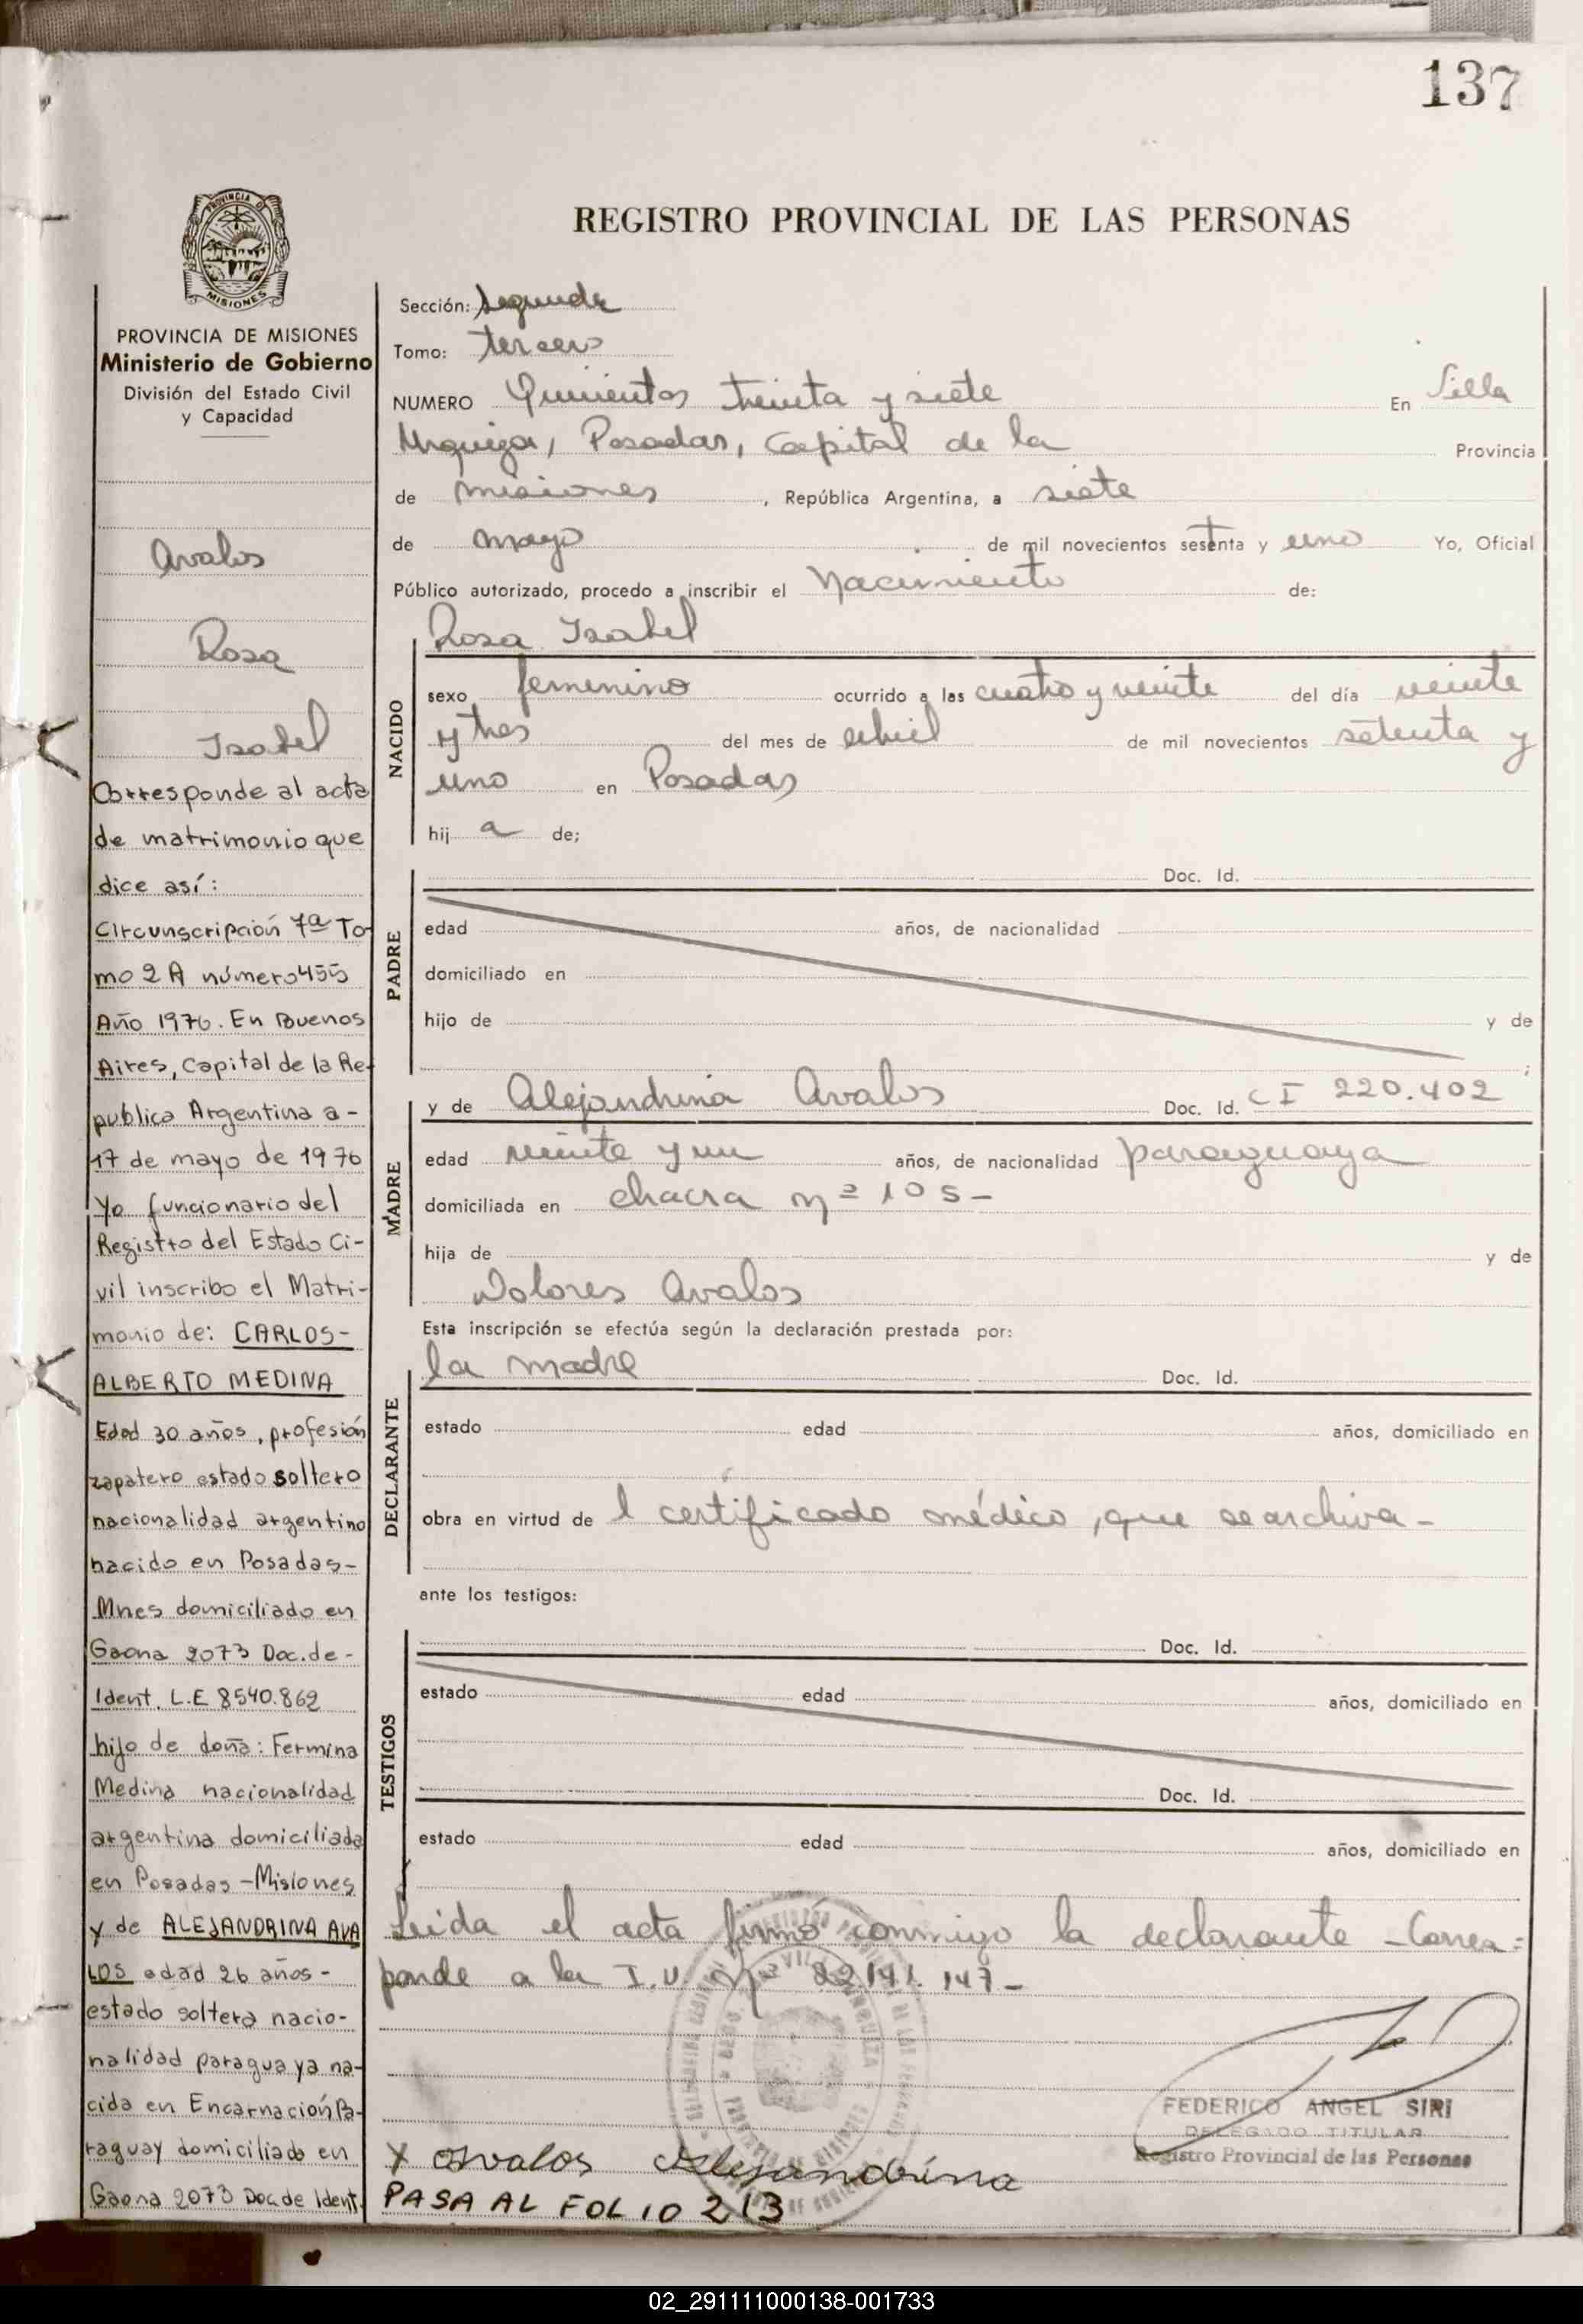 137
PROVINCIA DE
MISIONES
REGISTRO PROVINCIAL DE LAS PERSONAS
PROVINCIA DE MISIONES
Ministerio de Gobierno
División del Estado Civil
y Capacidad
Avalos
Rosa
Isabel
Corresponde al acta
de matrimonio que
dice así:
Circunscripción 7ª To-
mo 2 A número 455
Año 1976. En Buenos
Aires, Capital de la Re-
publica Argentina a-
17 de mayo de 1976
Yo funcionario del
Registro del Estado Ci-
vil inscribo el Matri-
monio de: CARLOS-
ALBERTO MEDINA
Edad 30 años, profesión
zapatero estado soltero
nacionalidad argentino
nacido en Posadas-
Mnes domiciliado en
Gaona 2073 Doc. de-
Ident. L.E 8540.862
hijo de doña: Fermina
Medina nacionalidad
argentina domiciliada
en Posadas-Misiones
y de ALEJANDRINA AVA
LOS edad 26 años-
estado soltera nacio-
nalidad paraguaya na-
cida en Encarnación Pa-
raguay domiciliada en
Gaona 2073 Doc de Ident.
Sección: Segunda
Tomo: tercero
NUMERO Quinientos treinta y siete En Villa
Urquiza, Posadas, Capital de la Provincia
de misiones, República Argentina, a siete
de mayo de mil novecientos sesenta y uno Yo, Oficial
Público autorizado, procedo a inscribir el Nacimiento de:
NACIDO
Rosa Isabel
sexo femenino ocurrido a las cuatro y veinte del día veinte
y tres del mes de abril de mil novecientos setenta y
uno en Posadas
hij a de;
PADRE
Doc. Id.
edad años, de nacionalidad
domiciliado en
hijo de y de
;
MADRE
y de Alejandrina Avalos Doc. Id. C I 220.402
edad veinte y un años, de nacionalidad paraguaya
domiciliada en chacra nº 105-
hija de y de
Dolores Avalos
Esta inscripción se efectúa según la declaración prestada por:
DECLARANTE
la madre Doc. Id.
estado edad años, domiciliado en
obra en virtud de l certificado médico, que se archiva-
ante los testigos:
TESTIGOS
Doc. Id.
estado edad años, domiciliado en
Doc. Id.
estado edad años, domiciliado en
Leida el acta firmó conmigo la declarante - Corres=
ponde a la I.U. Nº 22.141.147-
FEDERICO ANGEL SIRI
DELEGADO TITULAR
Registro Provincial de las Personas
X Avalos Alejandrina
PASA AL FOLIO 213
02_291111000138-001733